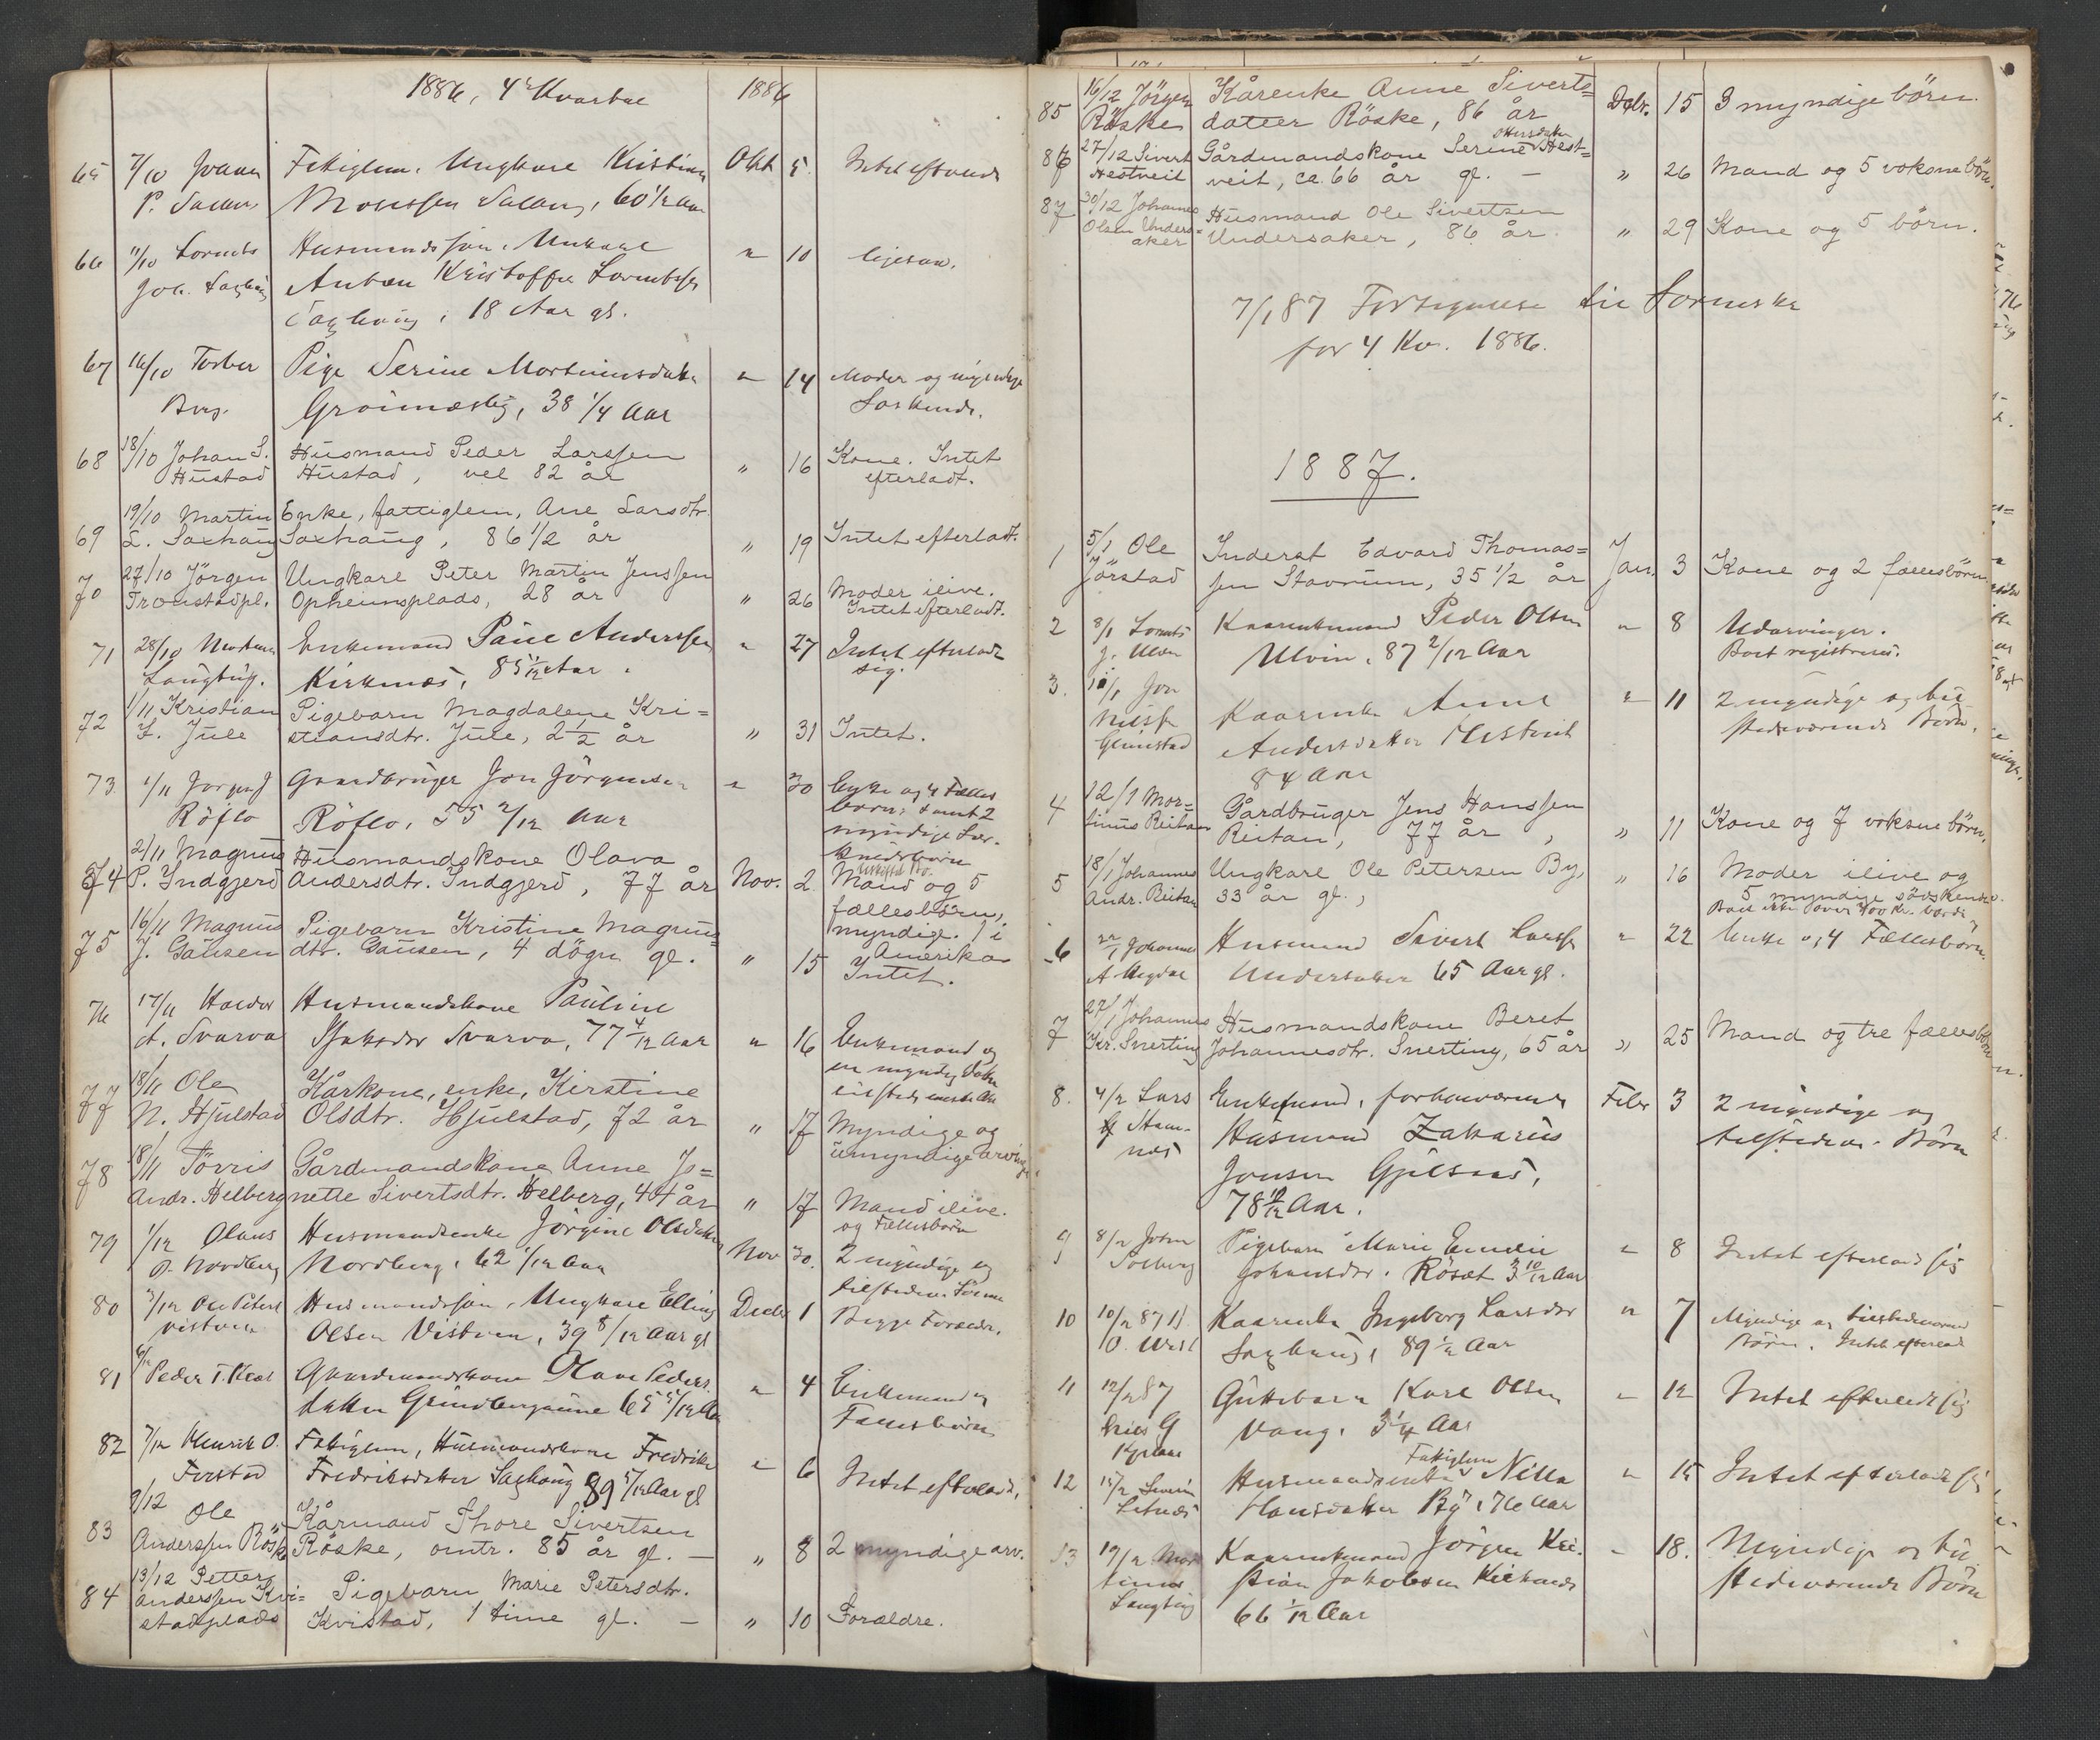 1886, 4de Kvartal 1886
65 7/10 Johan Fattiglem, Ungkarl Kristian Okt 5. Intet efterladt
P. Salberg Mortessen Salberg, 60 1/2 Aar
66 11/10 Lornts Husmandssøn, Ungkarl " 10 ligesaa.
Joh. Saxhaug Anton Kristoffer Lorntsen
Saxhaug, 18 Aar gl.
67 16/10 Torber Pige Serine Mortinusdatter " 14 Moder og myndige
Berg. Grønnæslig, 38 1/4 Aar Søskende.
68 18/10 Johan S. Husmand Peder Larssen
Hustad Hustad, vel 82 år " 16 Kone. Intet
efterladt.
19/10 Martin Enke, fattiglem, Ane Larsdtr.
69 L. Saxhaug Saxhaug, 86 1/2 år " 19 Intet efterladt.
70 27/10 Jörgen Ungkarl Peter Martin Jenssen
Tronstadpl. Opheimsplads, 28 år " 26 Moder ilive.
Intet efterladt.
71 28/10 Mortinus Enkemand Paul Anderssen " 27 Intet efterladt
Langtvig. Kirknæs, 85 1/12 Aar. sig.
72 1/11 Kristian Pigebarn Magdalene Kri=
L. Jule stiansdtr. Jule, 2 1/2 år " 31 Intet.
73. 1/11 Jørgen J Gaardbruger Jon Jörgensen " 30 Enke og 4 Fælles
Röflo Röflo, 55 2/12 Aar børn; samt 2
myndige Sær-
kuldsbørn
2/11 Magnus Husmandskone Olava Uskiftet Bo.
74 P. Indgjerd Andersdtr. Indgjerd, 77 år Nov. 2. Mand og 5
fællesbørn,
myndige. 1 i
Amerika
16/11 Magnus Pigebarn Kristine Magnus=
75 J. Gausen dtr. Gausen, 4 dögn gl. " 15 Intet.
76 17/11 Haldor Husmandskone Pauline
A. Svarva Isaksdtr Svarva, 77 4/12 Aar " 16 Enkemand og
en myndig Datter
tilstedeværende
77 18/11 Ole Kårkone, enke, Kirstine
N. Hjulstad Olsdtr. Hjulstad, 72 år " 17 Myndige og
umyndige arvinger
78 18/11 Törris Gårdmandskone Anne Jo=
Andr. Helberg nette Sivertsdtr. Helberg, 44 år " 17 Mand ilive.
og Fællesbørn
79 1/12 Olaus Husmandsenke Jörgine Olsdatter Nov 30. 2 myndige og
P. Nordberg Nordberg, 62 1/12 Aar tilstedev. Sønner
80 3/12 Ole Peters. Husmandssøn, Ungkarl Elling Decbr 1 Begge Forældre.
Vistven Olsen Vistven, 39 8/12 Aar gl
81 6/12 Peder T. Gaardmandskone Olava Peders " 4 Enkemand og
datter Grindbergaune 65 5/12 Aar Fællesbørn
82 7/12 Henrik O. Fattiglem, Husmandskone Fredrikke " 6 Intet efterladt.
Forstad Fredriksdatter Saxhaug 89 5/12 Aar gl
83 9/12 Ole Kårmand Thore Sivertsen
Anderssen Röske Röske, omtr. 85 år gl. — " 8 2 myndige arv.
84 13/12 Petter Pigebarn Marie Petersdtr.
Anderssen Kvi=
stadplads Kvistad, 1 time gl. — " 10 Forældre.
85 16/12 Jörgen Kårenke Anne Siverts= Dcbr. 15 3 myndige börn.
Röske datter Röske, 86 år
86 27/12 Sivert Gårdmandskone Serine Olausdatter Hest=
Hestveit veit, ca. 66 år gl. — " 26 Mand og 5 voksne börn.
87 30/12 Johannes Husmand Ole Sivertsen
Olsen Unders=
aker Undersaker, 86 år " 29 Kone og 5 börn.
7/1 87 Fortegnelse til Sorenskr
for 4 Kv. 1886.
1887.
1 5/1 Ole Inderst Edvard Thomas=
Jörstad sen Stavrum, 35 1/2 år Jan. 3 Kone og 2 fællesbörn.
2 8/1 Lornts Kaarenkemand Peder Olsen " 8 Udarvinger.
J. Ulven Ulvin, 87 2/12 Aar Boet registreres.
3. 11/1 Jon " 11 2 myndige og til-
Kaarenke Anne stedeværende Børn.
Grimstad Andersdatter Hestveit
84 Aar
4 12/1 Mor= Gårdbruger Jens Hanssen
tinus Reitan Reitan, 77 år, " 11 Kone og 7 voksne börn.
5 18/1 Johannes Ungkarl Ole Petersen By, " 16 Moder ilive og
Andr. Reitan 33 år gl., 5 myndige södskende.
Boet ikke over 400 Kr. værdi
6 22/1 Johannes Husmand Sivert Larssen " 22 Enke og 4 Fællesbørn.
A Undersaker 65 Aar gl.
7 27/1 Johannes Husmandskone Beret
Kr. Snerting Johannesdtr. Snerting, 65 år " 25 Mand og tre fællesbörn
8. 4/2 Lars Enkemand, forhenværende Febr 3 2 myndige og
Stam-
næs Husmand Zakarias tilstedev. Børn
Jonsen Gjelstad,
78 10/12 Aar.
9 8/2 Johan Pigebarn Marie Emelie " 8 Intet efterladt sig
Solberg Johansdtr. Rösæt 3 10/12 Aar
10 10/2 87 N Kaarenke Ingeborg Larsdtr " 7 Myndige og tilstedeværende
O. Saxhaug, 89 1/2 Aar Børn. Intet efterladt
11 12/2 87 Guttebarn Karl Olsen " 12 Intet efterladt sig
Vang, 3 1/4 Aar
12 15/2 Severin Husmandsenke Fattiglem Nilla " 15 Intet efterladt sig
Letnæs Hansdatter By, 76 Aar
13 19/2 Mor Kaarenkemand Jörgen Kri- " 18. Myndige og til
tinus stian Jakobsen stedeværende Børn
Langtvig 66 1/12 Aar